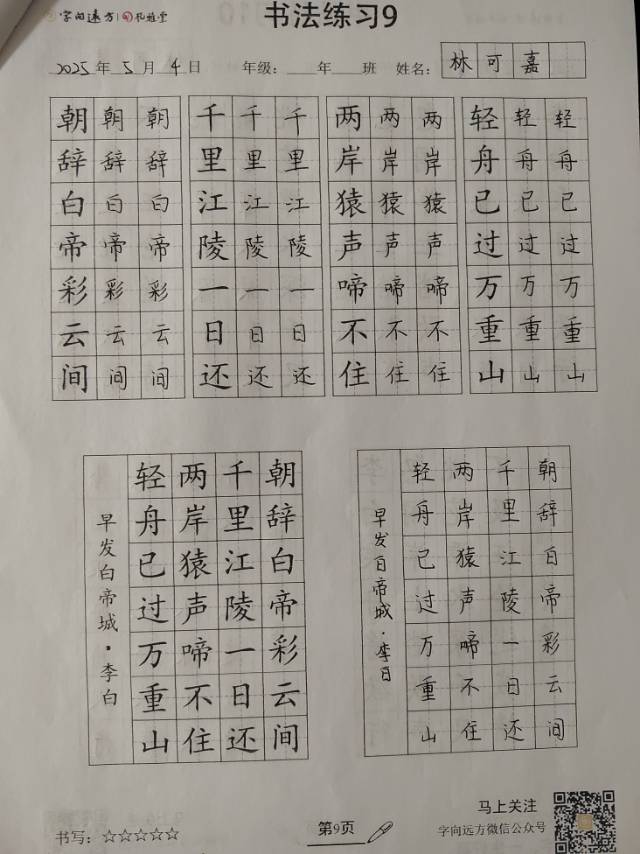 字向远方
书法练习9
2025年5月4日 年级: 年 班 姓名: 林可嘉
朝朝朝
辞辞辞
白白白
帝帝帝
彩彩彩
云云云
间间间
千千千
里里里
江江江
陵陵陵
一一一
日日日
还还还
两两两
岸岸岸
猿猿猿
声声声
啼啼啼
不不不
住住住
轻轻轻
舟舟舟
已已已
过过过
万万万
重重重
山山山
朝辞白帝彩云间
千里江陵一日还
两岸猿声啼不住
轻舟已过万重山
早发白帝城·李白
朝辞白帝彩云间
千里江陵一日还
两岸猿声啼不住
轻舟已过万重山
早发白帝城·李白
书写:☆☆☆☆☆
第9页
马上关注
字向远方微信公众号